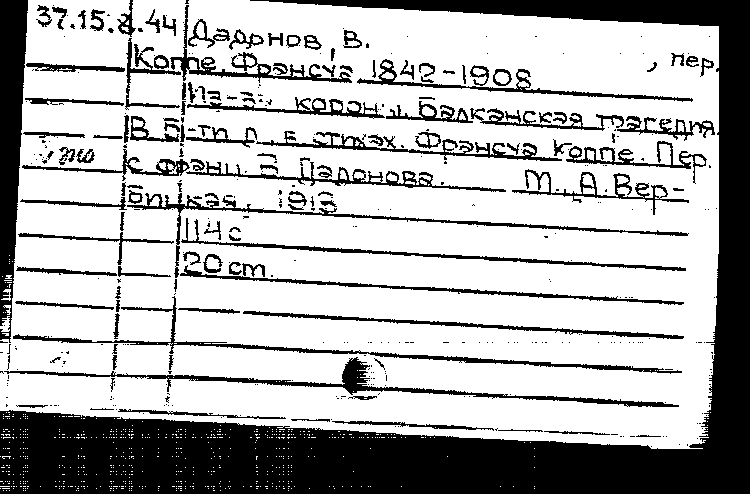 37.15.2.44 Дадонов, В.
, пер.
Коппе, Франсуа 1842-1908.
Из-за короны. Балканская трагедия.
В 5-ти д., в стихах. Франсуа Коппе. Пер.
с франц. В. Дадонова. М., А. Вер-
бицкая, 1913
114 с
20 ст.